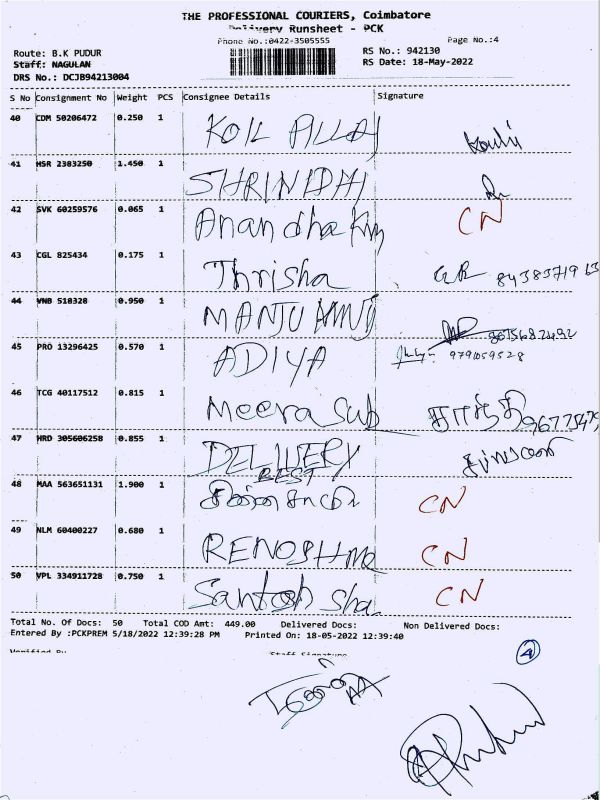 THE PROFESSIONAL COURIERS, Coimbatore
Delivery Runsheet - PCK
Phone No.:0422-3505555 Page No.:4
Route: B.K PUDUR RS No.: 942130
Staff: NAGULAN RS Date: 18-May-2022
DRS No.: DCJB94213004
S No Consignment No Weight PCS Consignee Details Signature
40 CDM 50206472 0.250 1 KOIL PILLAY
41 HSR 2383250 1.450 1 SHRINIDHI
42 SVK 60259576 0.065 1 Anandha CN
43 CGL 825434 0.175 1 Thrisha
44 VNB 518328 0.950 1 MANJU
45 PRO 13296425 0.570 1 ADIYA 9791059528
46 TCG 40117512 0.815 1 Meera Sub
47 HRD 305606258 0.855 1 DELIVERY
BEST
48 MAA 563651131 1.900 1 CN
49 NLM 60400227 0.680 1 CN
50 VPL 334911728 0.750 1 Santosh Sha CN
Total No. Of Docs: 50 Total COD Amt: 449.00 Delivered Docs: Non Delivered Docs:
Entered By :PCKPREM 5/18/2022 12:39:28 PM Printed On: 18-05-2022 12:39:40
Verified By Staff Signature
4